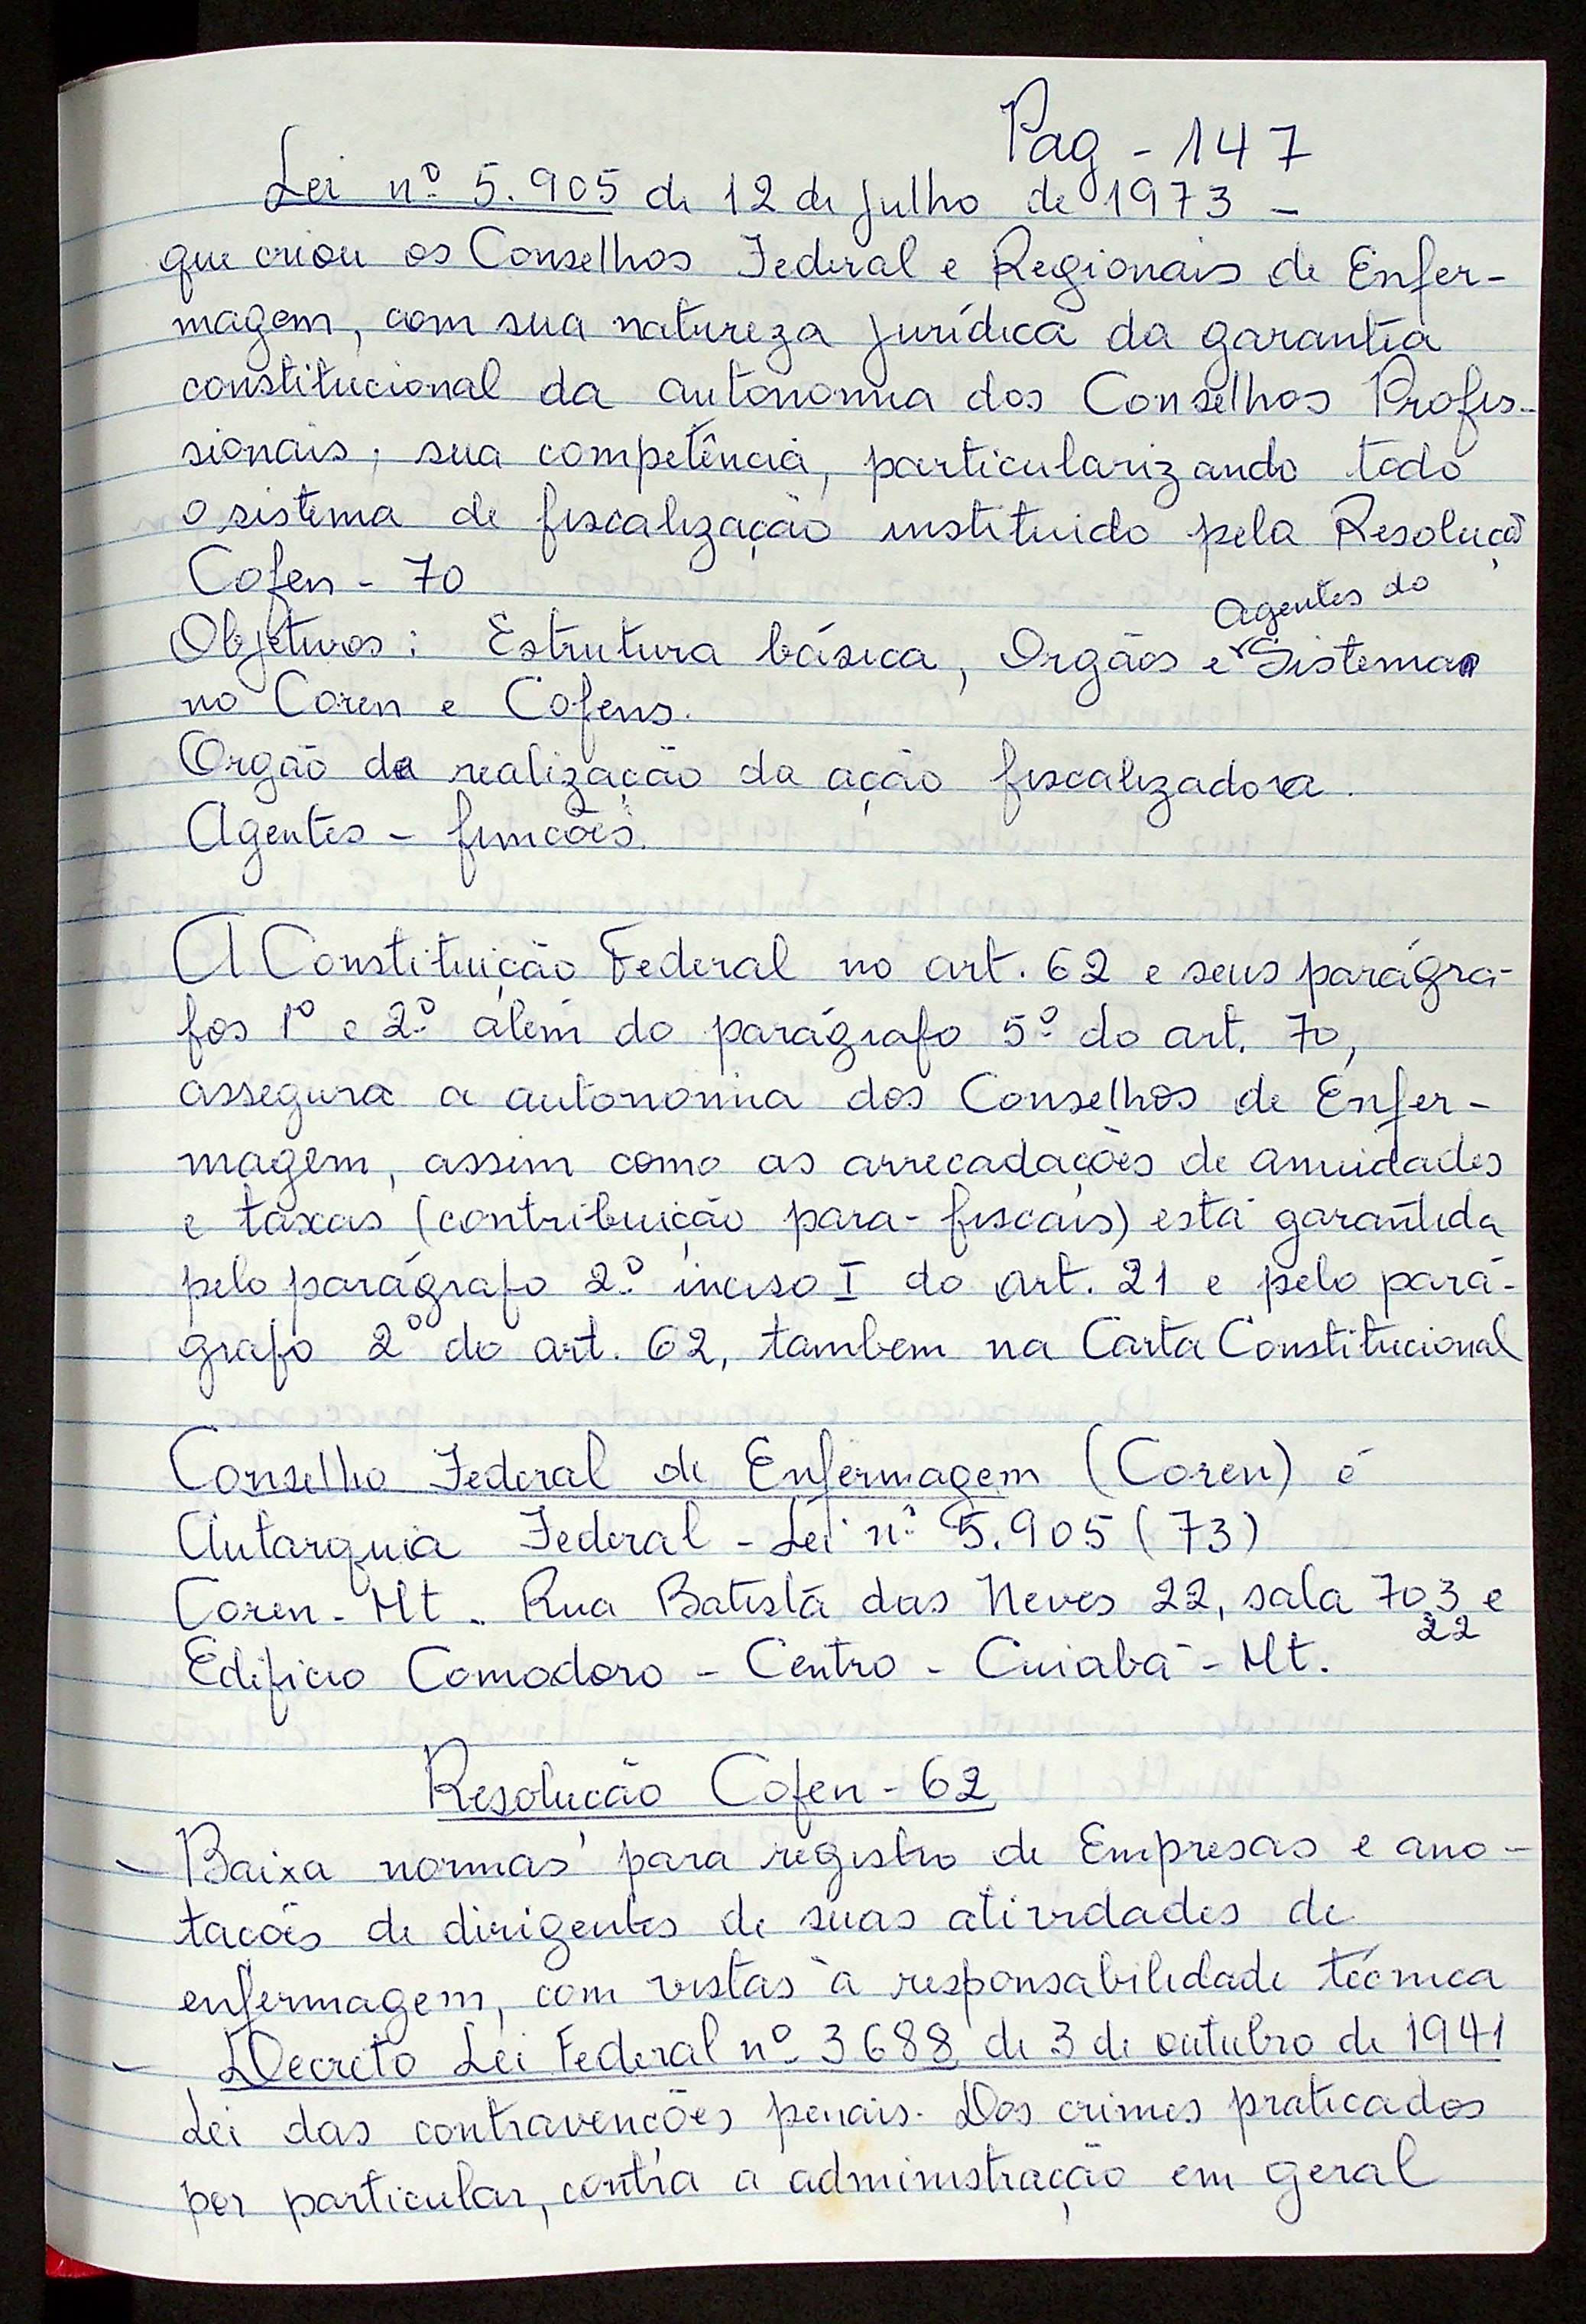 Pag - 147
Lei nº 5.905 de 12 de julho de 1973 -
que criou os Conselhos Federal e Regionais de Enfer-
magem, com sua natureza jurídica da garantia
constitucional da autonomia dos Conselhos Profis-
sionais; sua competência, particularizando todo
o sistema de fiscalização instituido pela Resolução
Cofen - 70
agentes do
Objetivos: Estrutura básica, Orgãos e Sistema
no Coren e Cofens.
Orgão da realização da ação fiscalizadora.
Agentes - funcões.
A Constituição Federal no art. 62 e seus parágra-
fos 1º e 2º além do parágrafo 5º do art. 70,
assegura a autonomia dos Conselhos de Enfer-
magem, assim como as arrecadações de anuidades
e taxas (contribuição para-fiscais) está garantida
pelo parágrafo 2º inciso I do art. 21 e pelo pará-
grafo 2º do art. 62, tambem na Carta Constitucional
Conselho Federal de Enfermagem (Coren) é
Autarquia Federal - Lei nº 5.905 (73)
Coren - Mt. Rua Batista das Neves 22, sala 703 e
22
Edificio Comodoro - Centro - Cuiabá - Mt.
Resolução Cofen - 62
- Baixa normas para registro de Empresas e ano-
tacões de dirigentes de suas atividades de
enfermagem, com vistas à responsabilidade técnica
- Decreto Lei Federal nº 3688 de 3 de outubro de 1941
Lei das contravencões penais. Dos crimes praticados
por particular, contra a administração em geral